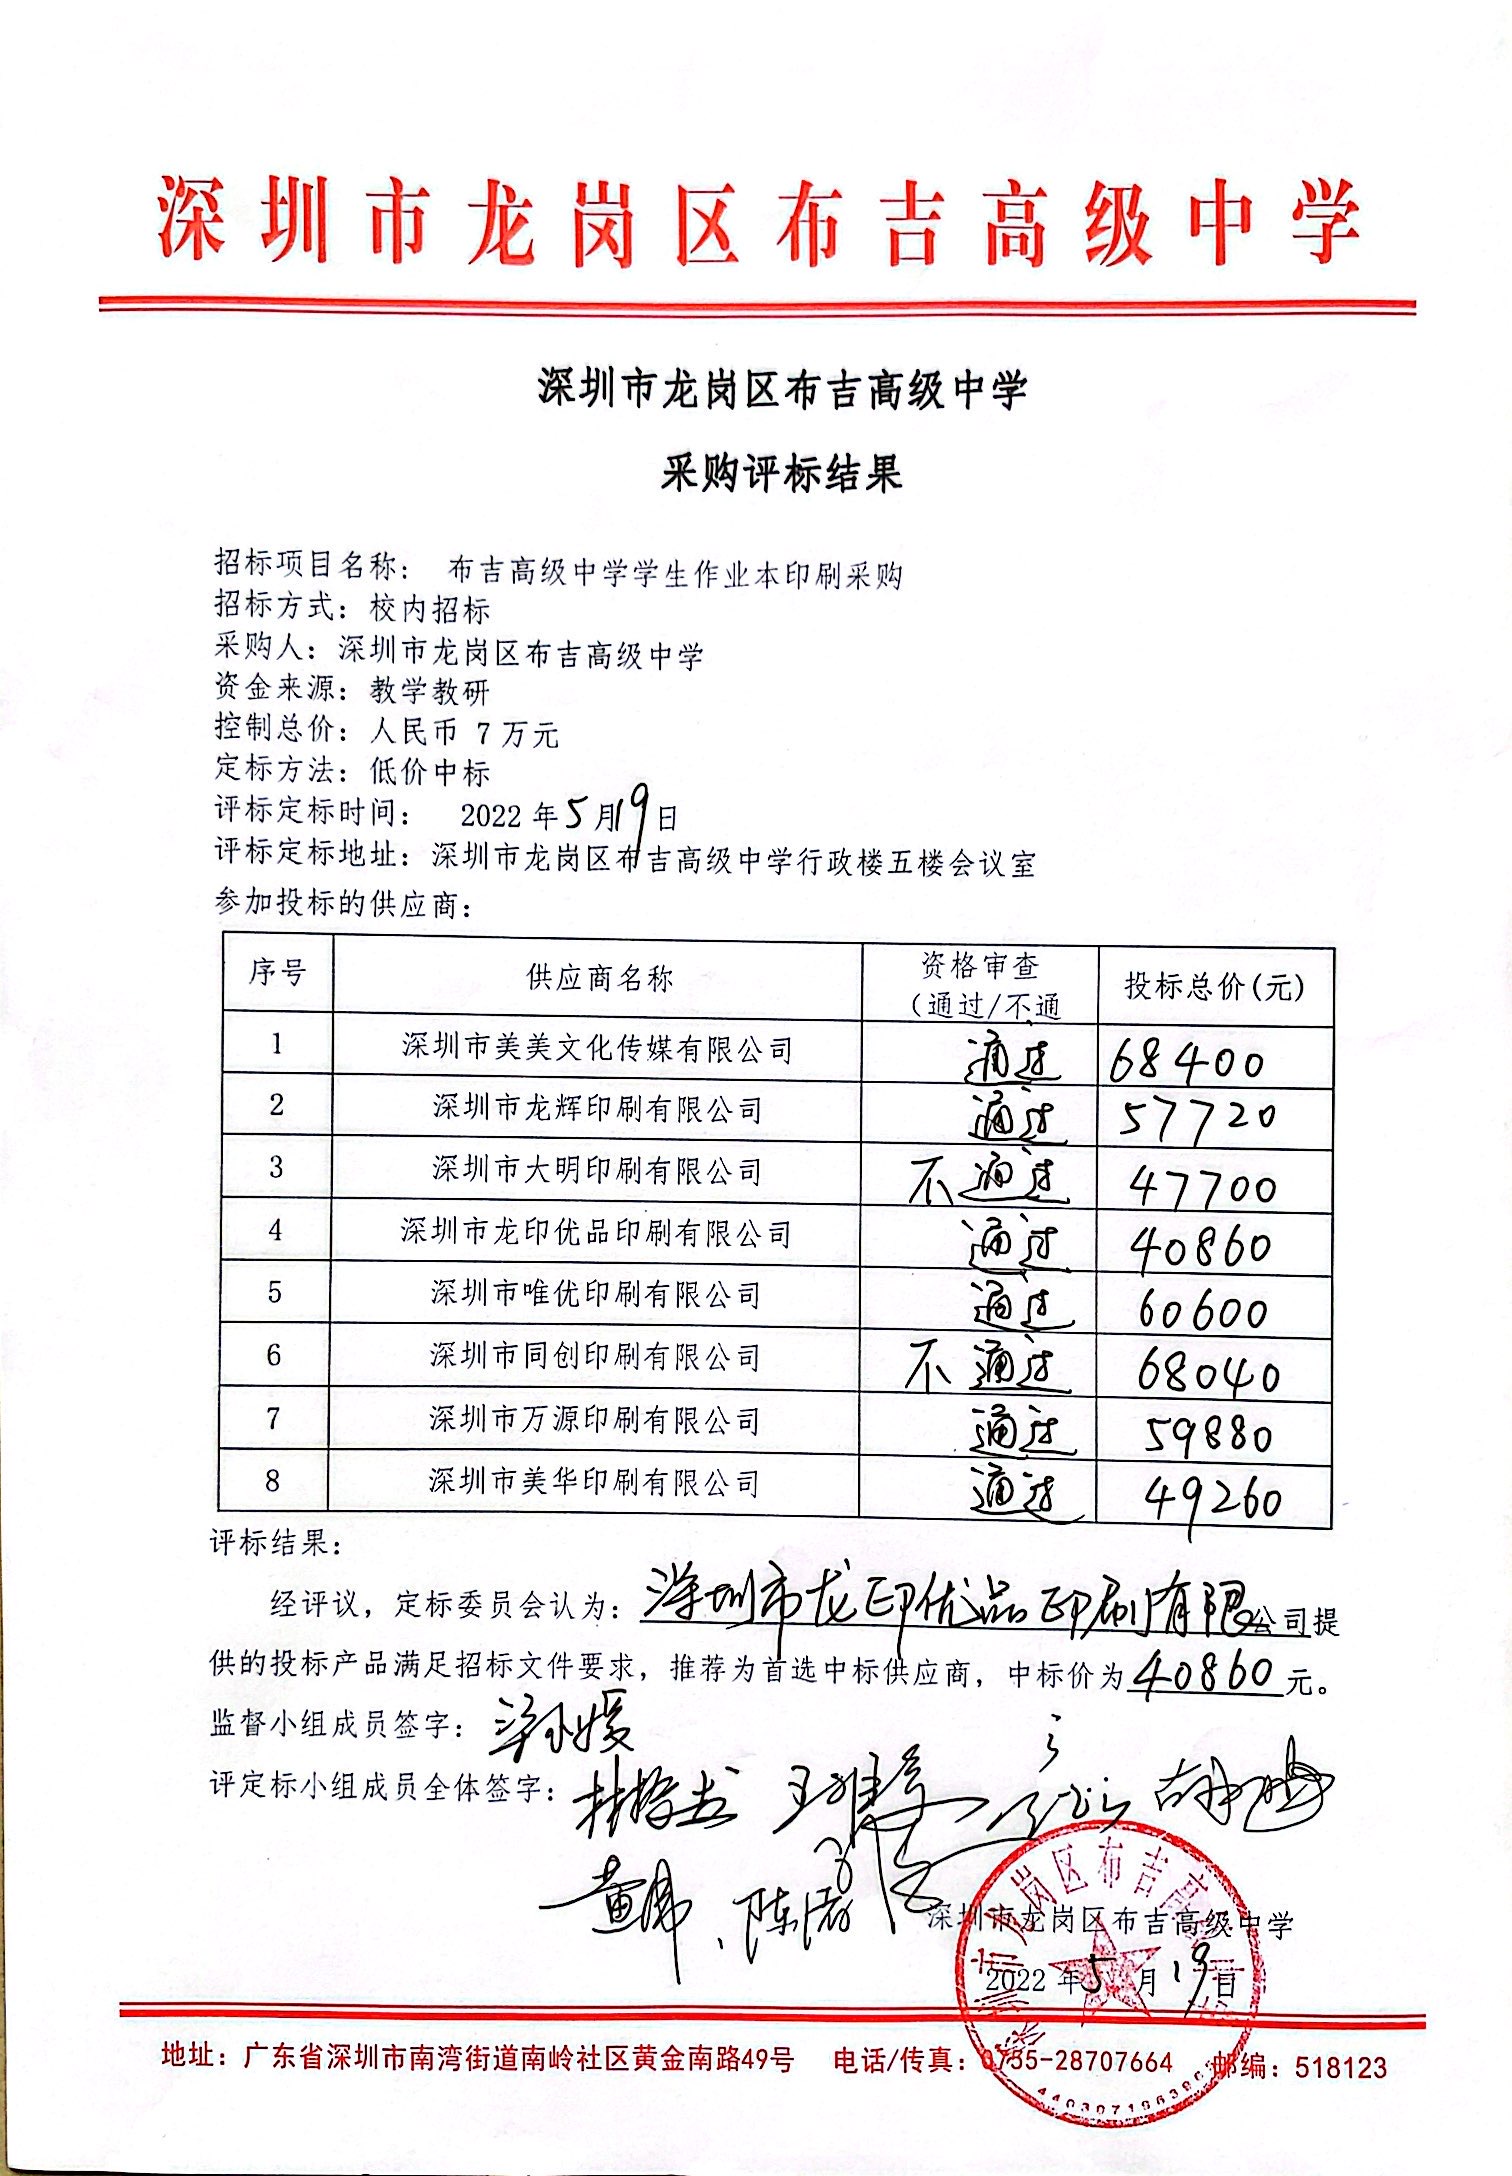 深圳市龙岗区布吉高级中学
深圳市龙岗区布吉高级中学
采购评标结果
招标项目名称： 布吉高级中学学生作业本印刷采购
招标方式：校内招标
采购人：深圳市龙岗区布吉高级中学
资金来源：教学教研
控制总价：人民币 7 万元
定标方法：低价中标
评标定标时间： 2022 年 5 月 19 日
评标定标地址：深圳市龙岗区布吉高级中学行政楼五楼会议室
参加投标的供应商：
序号 供应商名称 资格审查 投标总价(元)
(通过/不通
1 深圳市美美文化传媒有限公司 通过 68400
2 深圳市龙辉印刷有限公司 通过 57720
3 深圳市大明印刷有限公司 不通过 47700
4 深圳市龙印优品印刷有限公司 通过 40860
5 深圳市唯优印刷有限公司 通过 60600
6 深圳市同创印刷有限公司 不通过 68040
7 深圳市万源印刷有限公司 通过 59880
8 深圳市美华印刷有限公司 通过 49260
评标结果：
经评议，定标委员会认为：深圳市龙印优品印刷有限公司提
供的投标产品满足招标文件要求，推荐为首选中标供应商，中标价为40860元。
监督小组成员签字：
评定标小组成员全体签字：
深圳市龙岗区布吉高级中学
2022 年 5 月 19 日
地址：广东省深圳市南湾街道南岭社区黄金南路49号 电话/传真：0755-28707664 邮编：518123